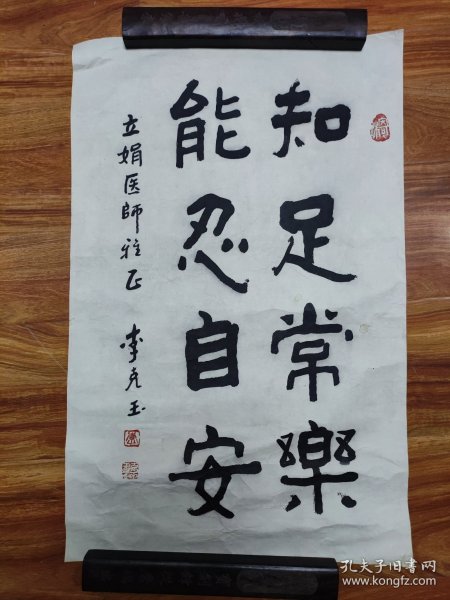 知足常樂
能忍自安
立娟医師雅正
李克玉
孔夫子旧书网
www.kongfz.com